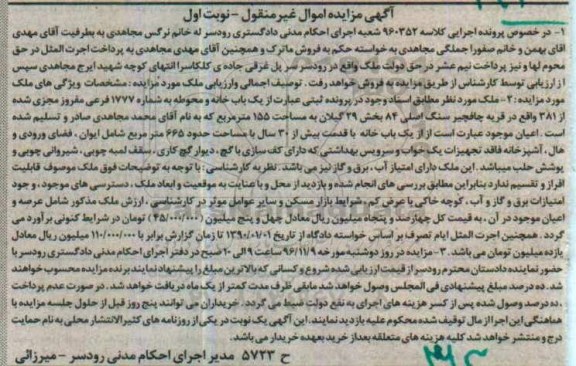 آگهی مزایده اموال غیر منقول - نوبت اول
۱- در خصوص پرونده اجرایی کلاسه ۹۶۰۳۵۲ شعبه اجرای احکام مدنی دادگستری رودسر له خانم نرگس مجاهدی به بطرفیت آقای مهدی
اقای بهمن و خانم صفورا جملگی مجاهدی به خواسته حکم به فروش ماترک و همچنین آقای مهدی مجاهدی به پرداخت اجرت المثل در حق
محوم لها و نیز پرداخت نیم عشر در حق دولت ملک واقع در رودسر سر پل غرفی جاده ی کلکاسرا انتهای کوچه شهید ایرج مجاهدی سپس
ارزیابی توسط کارشناس از طریق مزایده به فروش خواهد رفت. توصیف اجمالی وارزیابی ملک مورد مزایده: مشخصات ویژگی های ملک
مورد مزایده: ۲- ملک مورد نظر مطابق اسناد وجود در پرونده ثبتی عبارت از یک باب خانه و محوطه به شماره ۱۷۷۷ فرعی مفروز مجزی شده
از ۳۸۱ واقع در قریه چافجیر سنگ اصلی ۸۴ بخش ۲۹ گیلان به مساحت ۱۵۵ مترمربع که به نام آقای محمد مجاهدی صادر و تسلیم شده
است. اعیان موجود عبارت است از از یک باب خانه با قدمت بیش از ۳۰ سال با مساحت حدود ۶۶۵ متر مربع شامل ایوان، فضای ورودی و
هال، آشپزخانه فاقد تجهیزات یک خواب و سرویس بهداشتی که دارای کفسازی با گچ، دیوار گچ کاری، سقف لمبه چوبی، شیروانی چوبی و
پوشش حلب میباشد. این ملک دارای امتیاز آب، برق و گاز نیز می باشد. نظریه کارشناسی: با توجه به توضیحات فوق ملک موصوف قابلیت
افراز و تقسیم ندارد بنابراین مطابق بررسی های انجام شده و بازدید از محل و با عنایت به موقعیت و ابعاد ملک، دسترسی های موجود، وجود
امتیازات برق و گاز و آب، کوچه خاکی با عرض کم، شرایط بازار مسکن و سایر عوامل موثر در کارشناسی، ارزش ملک مذکور شامل عرصه و
اعیان موجود در آن، به قیمت کل چهارصد و پنجاه میلیون ریال معادل چهل و پنج میلیون (۴۵/۰۰۰/۰۰۰) تومان در شرایط کنونی برآورد می
گردد. همچنین اجرت المثل ایام تصرف بر اساس خواسته دادگاه از تاریخ ۱۳۹۰/۰۱/۰۱ تا زمان گزارش برابر با ۱۱۰/۰۰۰/۰۰۰ میلیون ریال معادل
یازده میلیون تومان می باشد. ۳- مزایده در روز دوشنبه مورخه ۹۶/۱۱/۹ ساعت ۹ الی ۲۰ صبح در دفتر اجرای احکام مدنی دادگستری رودسر با
حضور نماینده دادستان محترم رودسر از قیمت ارزیابی شده شروع و کسانی که بالاترین مبلغ را پیشنهاد نمایند برنده مزایده محسوب خواهند
شد. ده درصد مبلغ پیشنهادی فی المجلس وصول خواهد شد مابقی ظرف مدت کمتر از یک ماه دریافت خواهد شد. در صورت عدم پرداخت
، ده درصد وصول شده پس از کسر هزینه های اجرای به نفع دولت ضبط می گردد. خریداران می توانند پنج روز قبل از حلول جلسه مزایده با
هماهنگی این اجرا از مال توقیف شده محکوم علیه بازدید نمایند. این آگهی یک نوبت در یکی از روزنامه های کثیرالانتشار محلی به نام حمایت
درج و منتشر خواهد شد کلیه هزینه های متعلقه بعد از خرید بعهده خریدار می باشد.
ح ۵۷۲۳ مدیر اجرای احکام مدنی رودسر - میرزائی